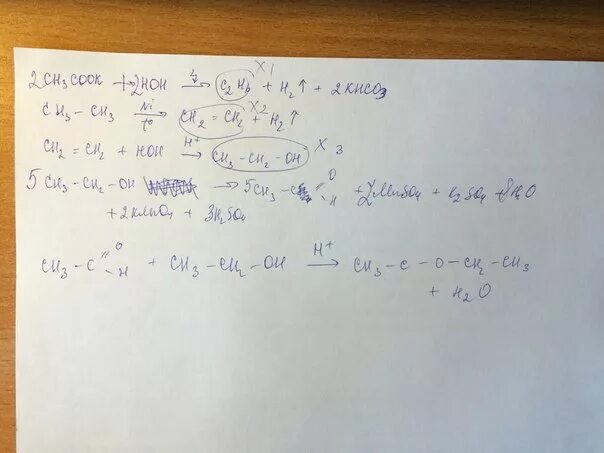 X1
2CH3COOK + 2HOH → C2H6 + H2↑ + 2KHCO3
CH3 – CH3 Ni t° → CH2 = CH2 + H2↑ X2
CH2 = CH2 + HOH H+ → CH3 – CH2 – OH X3
5CH3 – CH2 – OH → 5CH3 – C = O H + 2MnSO4 + K2SO4 + 8H2O
+ 2KMnO4 + 3H2SO4
CH3 – C = O H + CH3 – CH2 – OH H+ → CH3 – C – O – CH2 – CH3
+ H2O